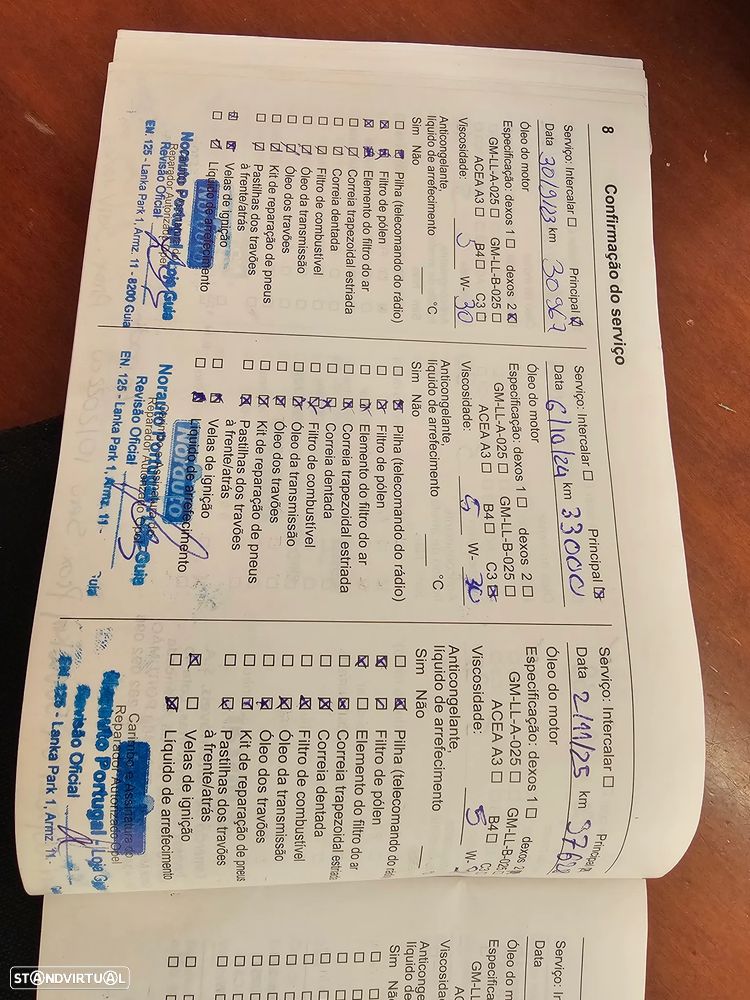 8
Confirmação do serviço
Serviço: Intercalar ☐ Principal ☒
Data 30/9/23 km 30967
Óleo do motor
Especificação: dexos 1 ☐ dexos 2 ☒
GM-LL-A-025 ☐ GM-LL-B-025 ☐
ACEA A3 ☐ B4 ☐ C3 ☐
Viscosidade: 5 W- 30
Anticongelante,
líquido de arrefecimento °C
Sim Não
Pilha (telecomando do rádio)
Filtro de pólen
Elemento do filtro do ar
Correia trapezoidal estriada
Correia dentada
Filtro de combustível
Óleo da transmissão
Óleo dos travões
Kit de reparação de pneus
Pastilhas dos travões
à frente/atrás
Velas de ignição
Líquido de arrefecimento
Norauto Portugal - Loja Guia
Revisão Oficial
EN. 125 - Lanka Park 1, Armz. 11 - 8200 Guia
Serviço: Intercalar ☐ Principal ☒
Data 6/10/24 km 33000
Óleo do motor
Especificação: dexos 1 ☐ dexos 2 ☐
GM-LL-A-025 ☐ GM-LL-B-025 ☐
ACEA A3 ☐ B4 ☐ C3 ☒
Viscosidade: 5 W- 30
Anticongelante,
líquido de arrefecimento °C
Sim Não
Pilha (telecomando do rádio)
Filtro de pólen
Elemento do filtro do ar
Correia trapezoidal estriada
Correia dentada
Filtro de combustível
Óleo da transmissão
Óleo dos travões
Kit de reparação de pneus
Pastilhas dos travões
à frente/atrás
Velas de ignição
Líquido de arrefecimento
Norauto
Norauto Portugal - Guia
Revisão Oficial
EN. 125 - Lanka Park 1, Armz. 11 - Guia
Serviço: Intercalar ☐ Principal
Data 2/11/25 km
Óleo do motor
Especificação: dexos 1 ☐ dexos 2
GM-LL-A-025 ☐ GM-LL-B-02
ACEA A3 ☐ B4 ☐
Viscosidade: 5 W-
Anticongelante,
líquido de arrefecimento
Sim Não
Pilha (telecomando do
Filtro de pólen
Elemento do filtro do ar
Correia trapezoidal estriada
Correia dentada
Filtro de combustível
Óleo da transmissão
Óleo dos travões
Kit de reparação de pneus
Pastilhas dos travões
à frente/atrás
Velas de ignição
Líquido de arrefecimento
Carimbo e Assinatura do
Reparador Autorizado Opel
Norauto Portugal - Loja
Revisão Oficial
EN. 125 - Lanka Park 1, Armz. 11 -
Serviço: In
Data
Óleo do motor
Especifica
GM-LL
ACEA
Viscosidad
Anticongel
líquido de
Sim Nã
STANDVIRTUAL